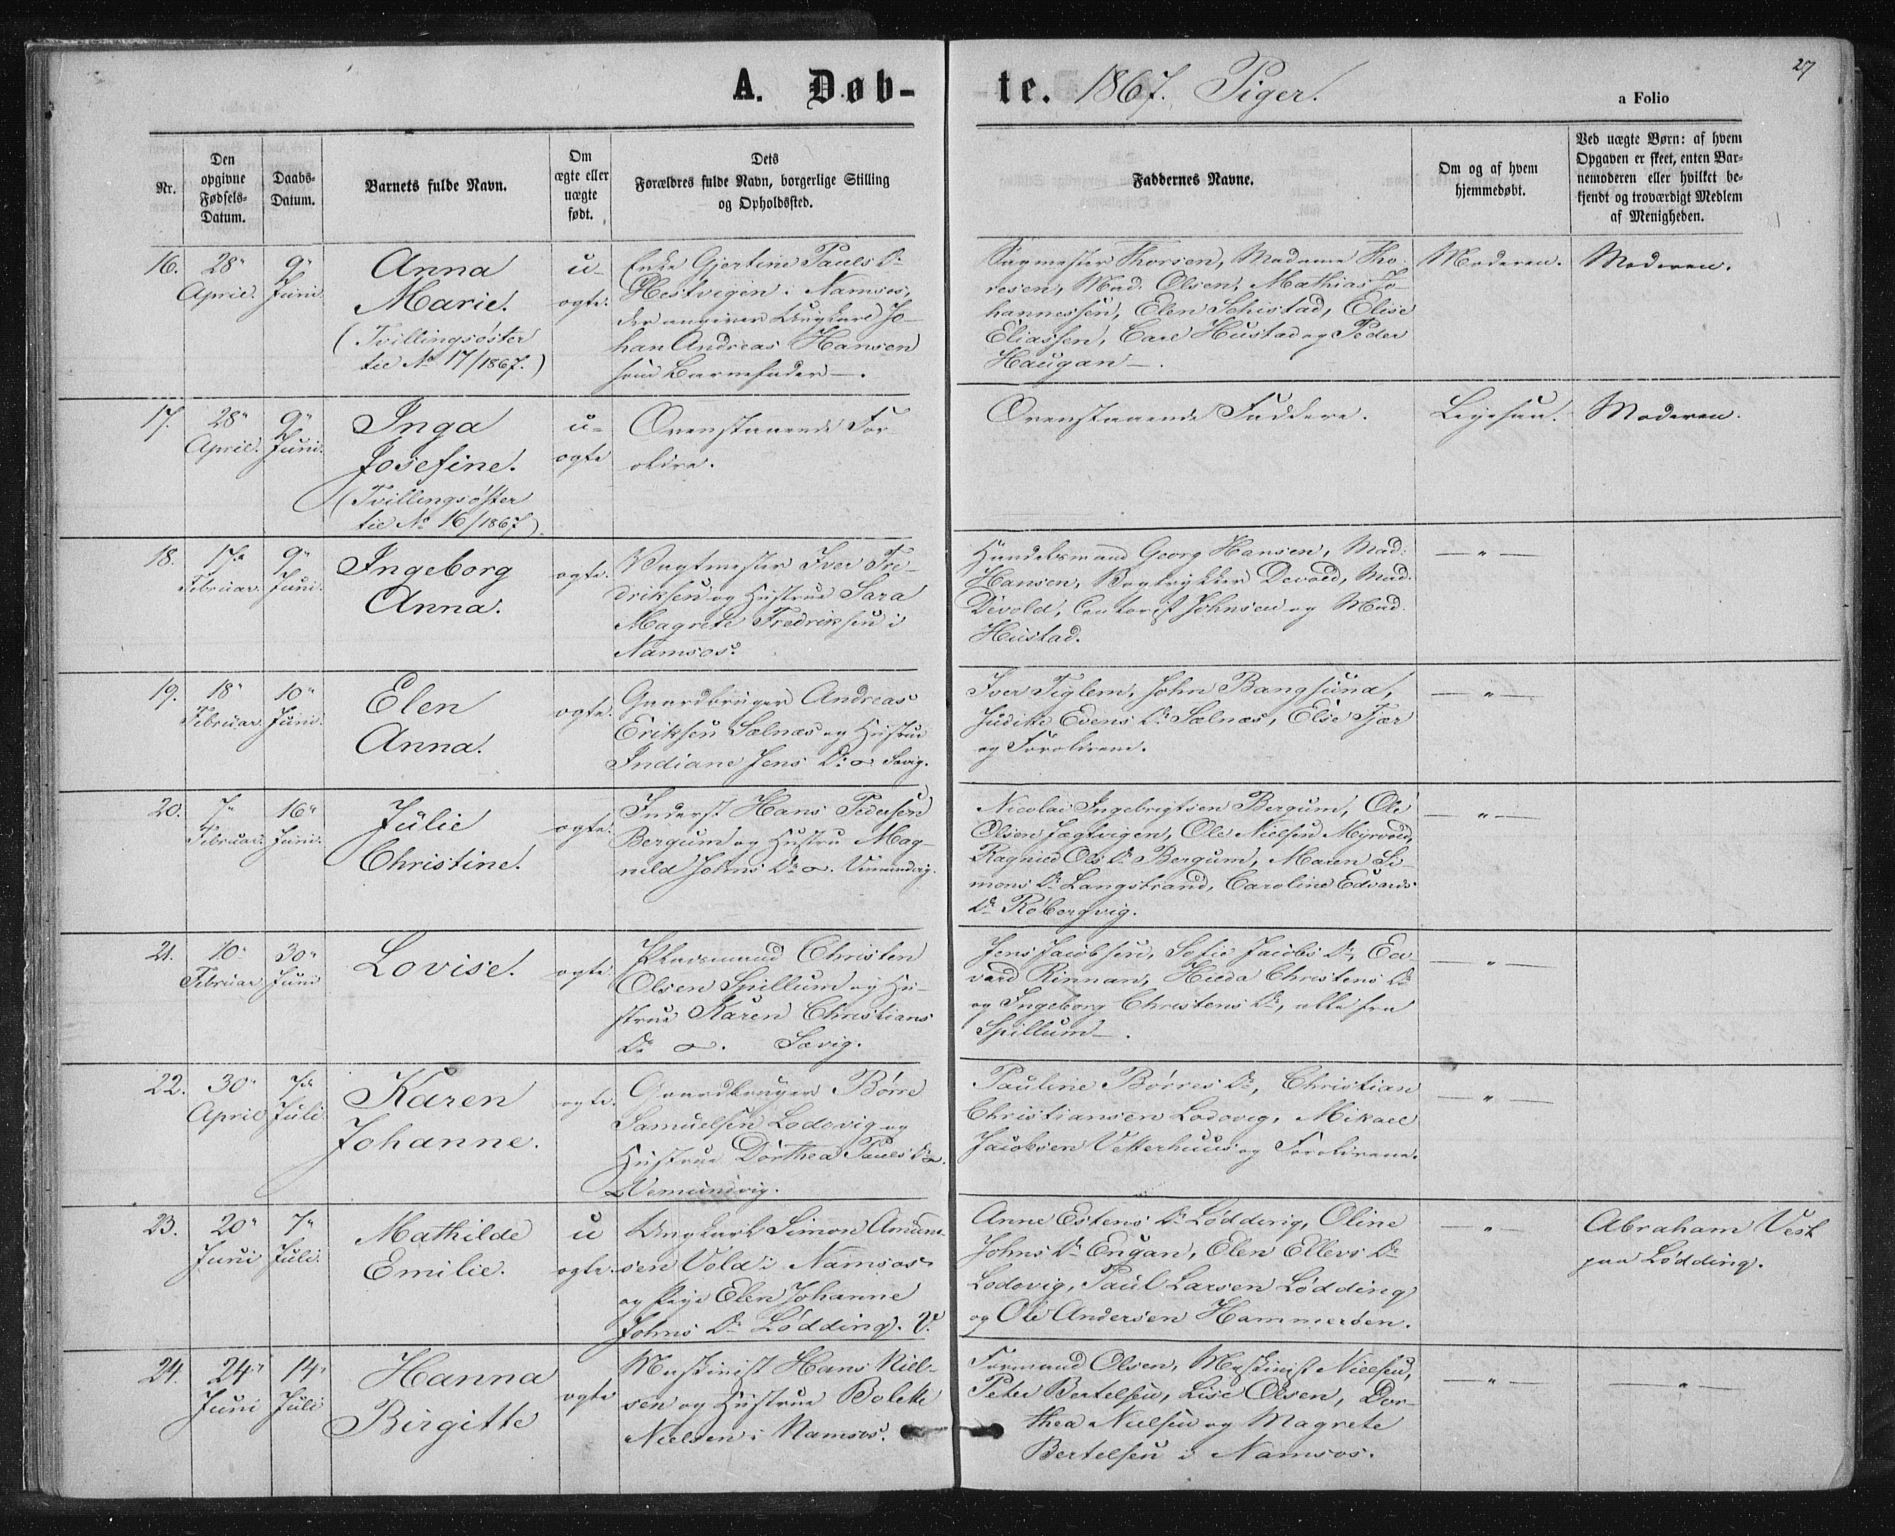 A. Døb-
te. 1867. Piger.
27
a Folio
Nr.
Den opgivne Fødsels-Datum.
Daabs-Datum.
Barnets fulde Navn.
Om ægte eller uægte født.
Dets Forældres fulde Navn, borgerlige Stilling og Opholdssted.
Faddernes Navne.
Om og af hvem hjemmedøbt.
Ved uægte Børn: af hvem Opgaven er skeet, enten Barnemoderen eller hvilket bekjendt og troværdigt Medlem af Menigheden.
16.
28 April.
9 Juni.
Anna
Marie.
(Tvillingsøster
til No 17/1867.)
u-
ægte.
Enke Gjertine Pauls D:
Hestvigen i Namsos,
der angiver Ungkarl Jo-
han Andreas Hansen
som Barnefader —.
Thorsen, Madame Tho-
resen, Mad. Olsen, Mathias Jo-
hannessen, Elen Schistad, Elise
Eliassen, Carl Hustad og Peder
Haugan —.
Moderen.
Moderen.
17.
28 April.
9 Juni.
Inga
Josefine.
(Tvillingsøster
til No 16/1867).
u-
ægte
Ovenstaaende For-
ældre.
Ovenstaaende Faddere.
Moderen.
18.
17 Februar.
9 Juni.
Ingeborg
Anna.
ægte.
Vagtmester Iver Fre-
driksen og Hustrue Sara
Magrete Fredriksen i
Namsos.
Handelsmand Georg Hansen, Mad:
Hansen, Bogtrykker Devold, Mad.
Devold, Johnsen og Mad.
Hustad.
— " —
19.
18 Februar.
10 Juni.
Elen
Anna.
ægte.
Gaardbruger Andreas
Eriksen Sælnæs og Hustrue
Indiane Jens D: Sævig.
Iver Tiglem, John Bangsund,
Judithe Evens D: Sælnæs, Else Fjær
og Forældrene.
— " —
20.
7 Februar.
16 Juni.
Julie
Christine.
ægte.
Inderst Hans Pedersen
Bergum og Hustru Mag-
nild Johns D: Vemundvig.
Nicolai Ingebrigtsen Bergum, Ole
Olsen Jægtvigen, Ole Nielsen Myrvold,
Ragnild Ols D: Bergum, Maren Si-
mons D: Langstrand, Caroline Edvards
D: Robergvig.
— " —
21.
10 Februar
30 Juni
Lovise.
ægte.
Pladsmand Christen
Olsen Spillum og Hu-
strue Karen Christians
D: Sævig.
Jens Jacobsen, Sofie Jacobs D:, Ed-
vard Rinnan, Hilda Christens D:
og Ingeborg Christens D:, alle fra
Spillum —.
— " —
22.
30 April
7de Juli
Karen
Johanne.
ægte.
Gaardbruger Børre
Samuelsen Lodovig og
Hustrue Dorthea Pauls D:
Vemundvig.
Pauline Børres D:, Christian
Christiansen Lodovig, Mikael
Jacobsen Vetterhuus og Forældrene.
— " —
23.
20 Juni
7 Juli.
Mathilde
Emilie.
u
ægte.
Ungkarl Simon Amund-
sen Vold i Namsos
og Pige Elen Johanne
Johns D: Lødding. V.
Anne Estens D: Lødding, Oline
Johns D: Engan, Elen Ellevs D:
Lodovig, Paul Larsen Lødding
og Ole Andersen Hammersen.
— " —
Abraham Vest
paa Lødding.
24.
24 Juni
14 Juli
Hanna
Birgitte
ægte
Maskinist Hans Niel-
sen og Hustrue Bolette
Nielsen i Namsos.
Formand Olsen, Maskinist Nielsen,
Peter Bertelsen, Lise Olsen, Dor-
thea Nielsen og Magrete
Bertelsen i Namsos.
— " —
— " —